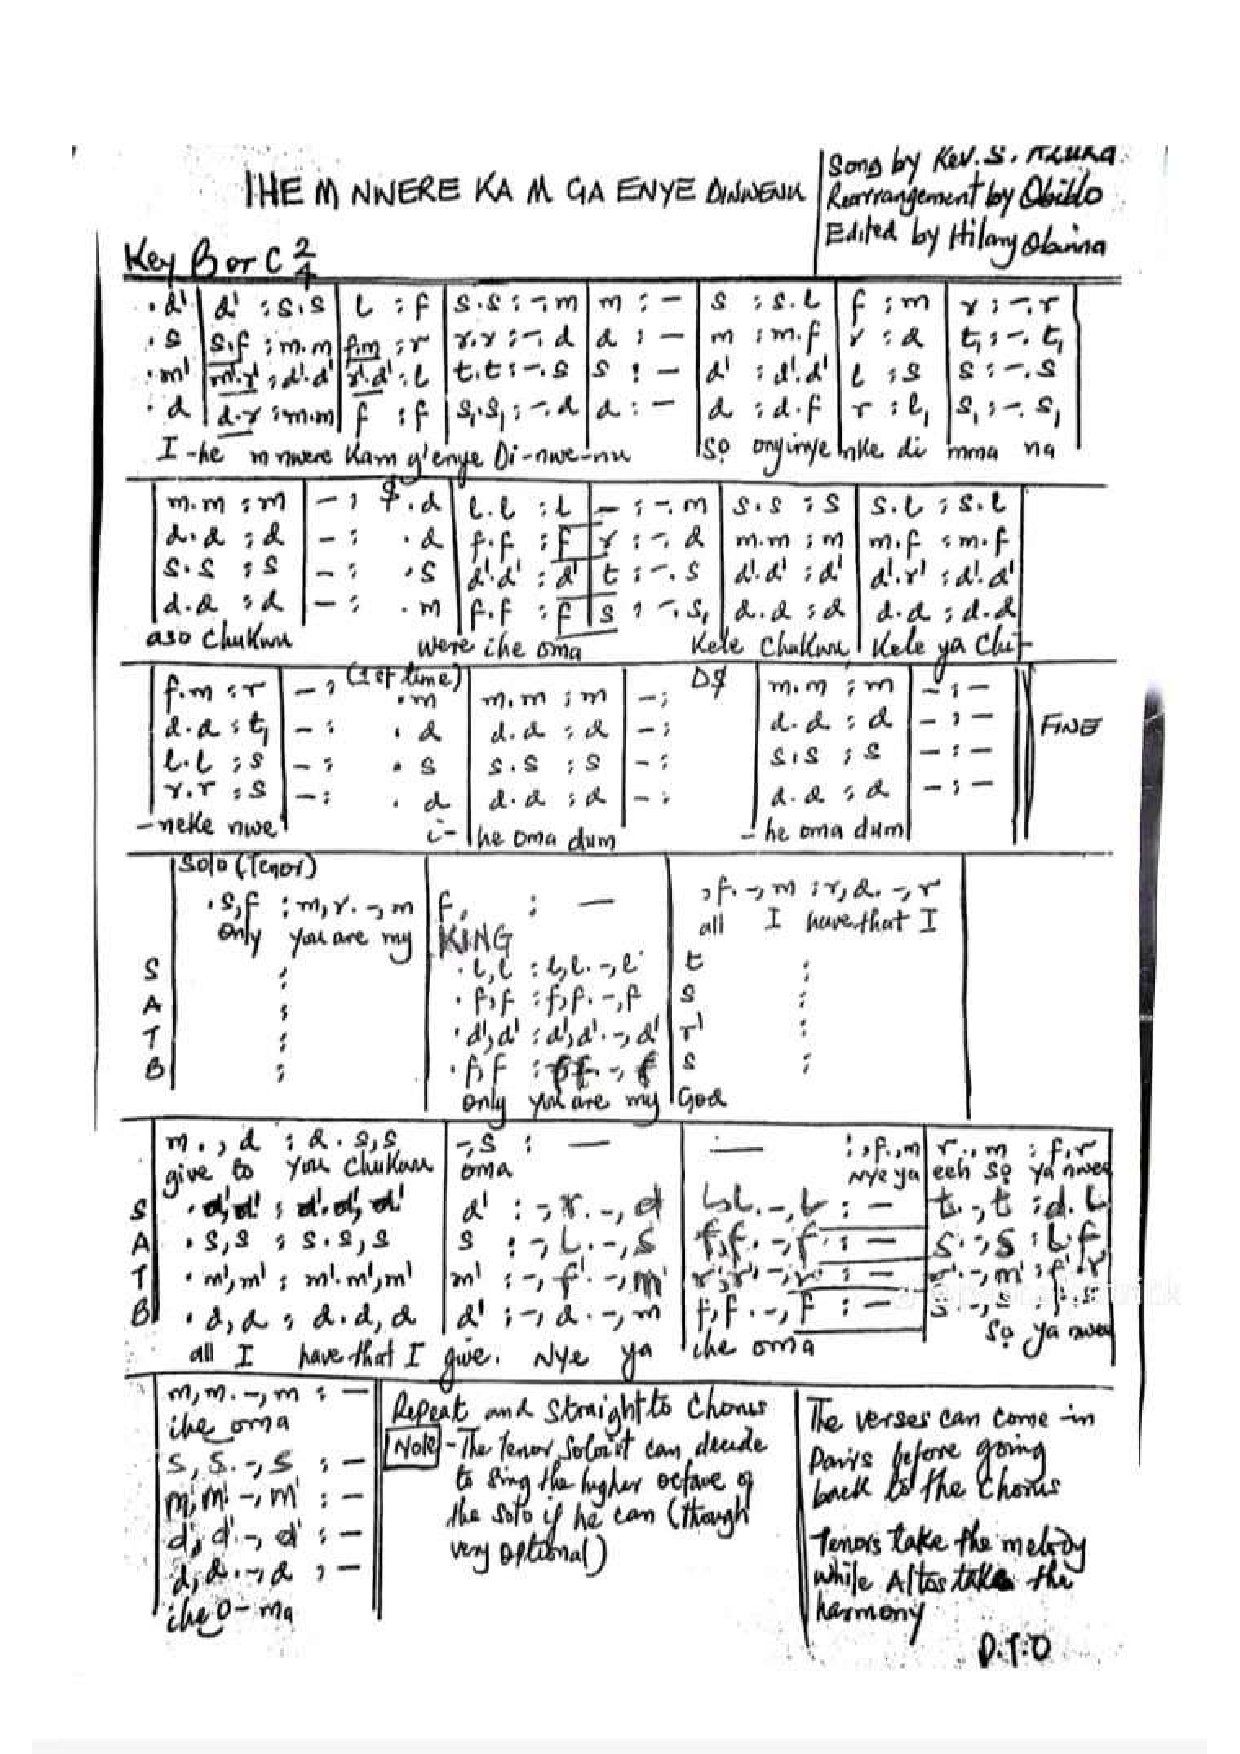 IHE M NWERE KA M GA ENYE DINWENU
Song by Rev. S.
Rearrangement by Obiblo
Edited by Hilary Obinna
Key B or C 2/4
. d' | d' : s.s | l : f | s.s : -.m | m : - | s : s.l | f : m | r : -.r
. s | s.f : m.m | f.m : r | r.r : -. d | d : - | m : m.f | r : d | t, : -. t,
. m' | m'.r' : d'.d' | r'.d' : l | t.t : -.s | s : - | d' : d'.d' | l : s | s : -.s
. d | d.r : m.m | f : f | s,.s, : -.d | d : - | d : d.f | r : l, | s, : -. s,
I-he m nwere Kam g'enye Di-nwe-nu sọ onyinye nke di mma na
m.m : m | - : $ . d | l.l : l | - : -.m | s.s : s | s.l : s.l
d.d : d | - : . d | f.f : f | r : -. d | m.m : m | m.f : m.f
s.s : s | - : . s | d'.d' : d' | t : -. s | d'.d' : d' | d'.r' : d'.d'
d.d : d | - : . m | f.f : f | s : -.s, | d.d : d | d.d : d.d
aso Chukwu were ihe oma Kele Chukwu Kele ya Chi-
(1st time) D$
f.m : r | - : . m | m.m : m | - : m.m : m | - : -
d.d : t, | - : . d | d.d : d | - : d.d : d | - : - FINE
l.l : s | - : . s | s.s : s | - : s.s : s | - : -
r.r : s | - : . d | d.d : d | - : d.d : d | - : -
-neke nwe i- he oma dum - he oma dum
Solo (Tenor)
.s,f : m,r.-,m | f, : - | ,f.-,m : r,d.-,r
only you are my KING all I have that I
S : | . l,l : l,l.-,l | t :
A : | . f,f : f,f.-,f | s :
T : | . d',d' : d',d'.-,d' | r' :
B : | . f,f : f,f.-,f | s :
only you are my God
m.,d : d.s,s | -,s : - | - : ,f.,m | r.,m : f,r
give to you Chukwu oma Nye ya eeh sọ ya nwee
S . d',d' : d'.d',d' | d' : -,r.-,d | l,l.-,l : - | t.-,t : d.l
A . s,s : s.s,s | s : -,l.-,s | f,f.-,f : - | s.-,s : l.f
T . m',m' : m'.m',m' | m' : -,f'.-,m' | r',r'.-,r' : - | r'.-,m' : f'.r'
B . d,d : d.d,d | d' : -,d.-,m | f,f.-,f : - | s.-,s : f.s
all I have that I give. Nye ya ihe oma sọ ya nwee
m,m.-,m : -
ihe oma
s,s.-,s : -
m',m'.-,m' : -
d',d'.-,d' : -
d,d.-,d : -
ihe o-ma
Repeat and straight to Chorus
Note - The Tenor Soloist can decide
to sing the higher octave of
the solo if he can (though
very optional)
The verses can come in
Pairs before going
back to the Chorus
Tenors take the melody
while Altos take the
harmony
P.T.O